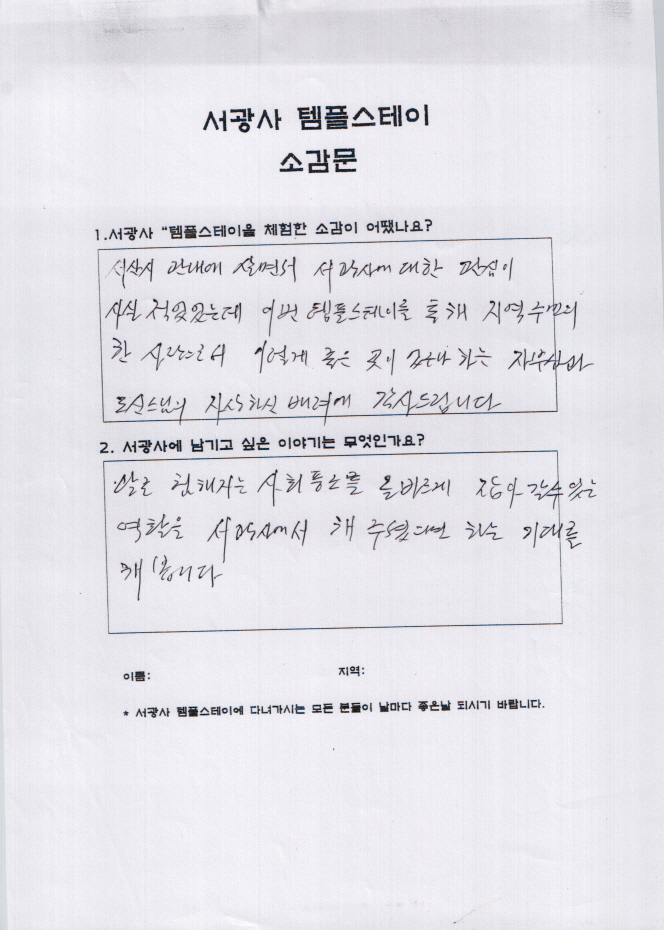 서광사 템플스테이
소감문
1.서광사 “템플스테이을 체험한 소감이 어땠나요?
서산시 관내에 살면서 서광사에 대한 관심이
사실 적었었는데 이번 템플스테이를 통해 지역주민의
한 사람으로서 이렇게 좋은 곳이 있구나 하는 자부심과
도신스님의 자상하신 배려에 감사드립니다
2. 서광사에 남기고 싶은 이야기는 무엇인가요?
날로 험해지는 사회풍토를 올바르게 잡아 갈수 있는
역할을 서광사에서 해 주셨으면 하는 기대를
해 봅니다
이름: 지역:
* 서광사 템플스테이에 다녀가시는 모든 분들이 날마다 좋은날 되시기 바랍니다.